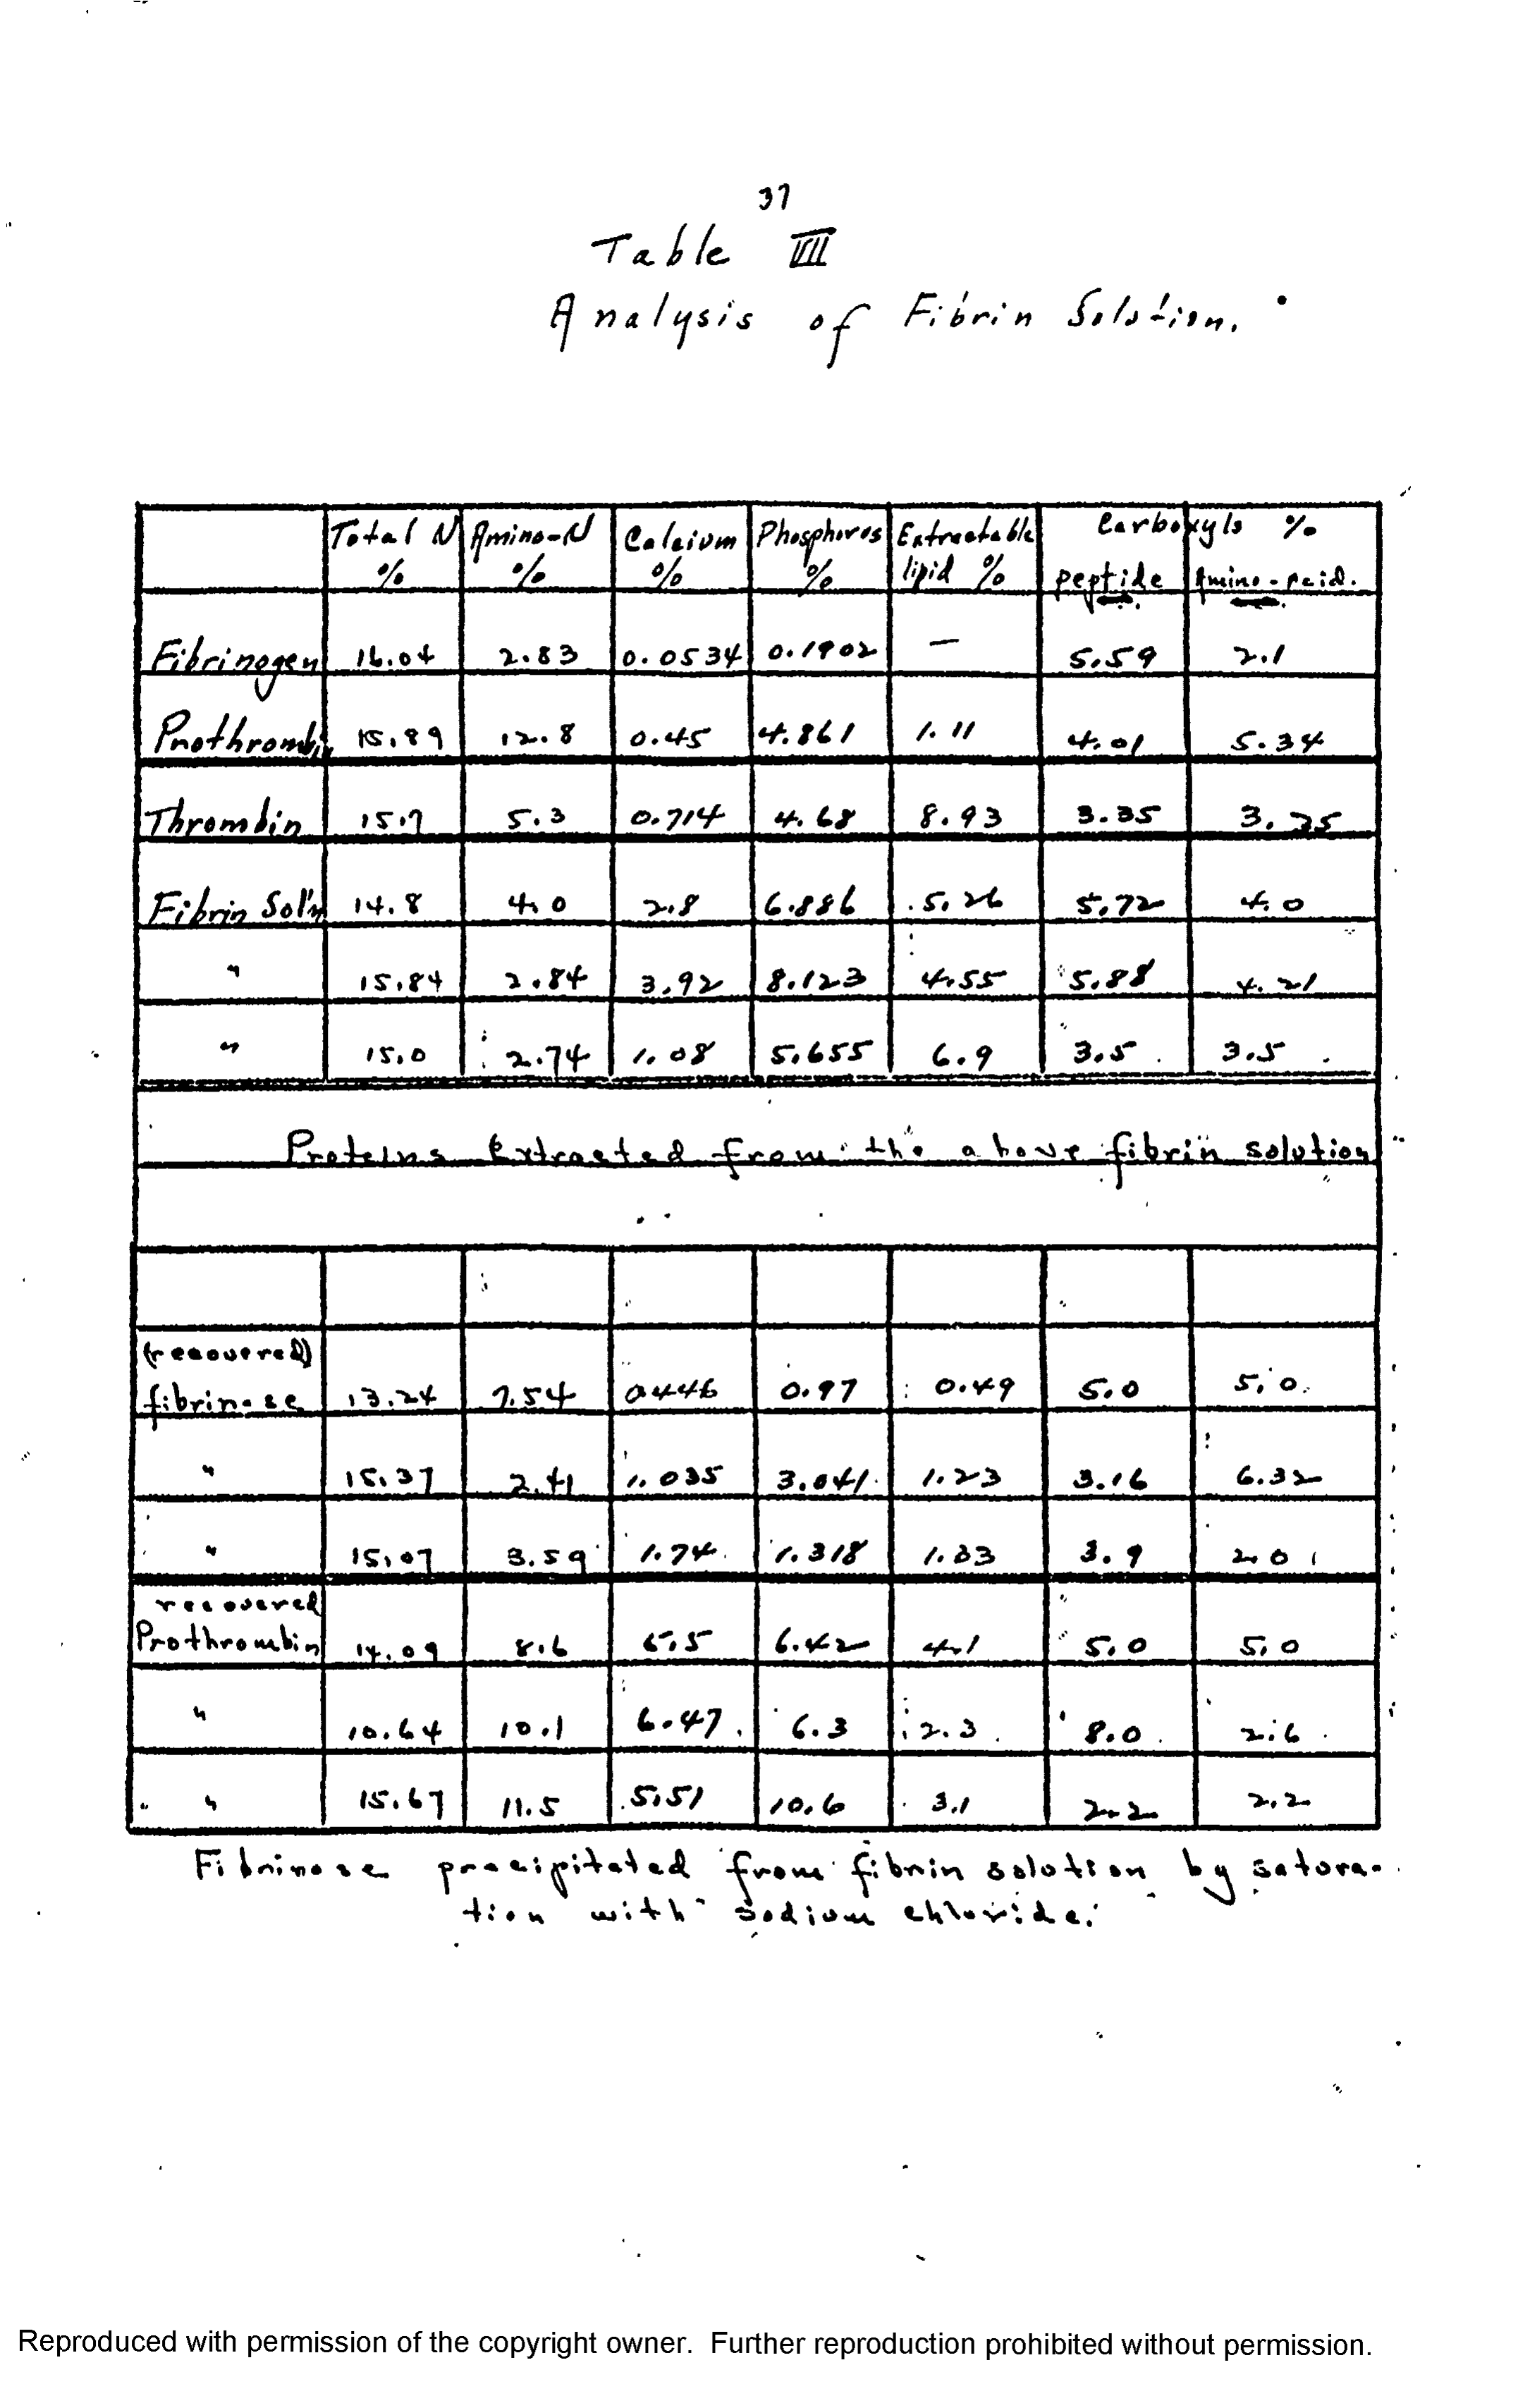 37
Table VII
Analysis of Fibrin Solution.
Total N % Amino-N % Calcium % Phosphorus % Extractable lipid % Carboxyls %
peptide Amino-acid.
Fibrinogen 16.04 2.83 0.0534 0.1902 — 5.59 2.1
Prothrombin 15.89 12.8 0.45 4.861 1.11 4.01 5.34
Thrombin 15.7 5.3 0.714 4.68 8.93 3.35 3.35
Fibrin Sol'n 14.8 4.0 2.8 6.886 5.26 5.72 4.0
" 15.84 2.84 3.92 8.123 4.55 5.88 4.21
" 15.0 2.74 1.08 5.655 6.9 3.5 3.5
Proteins Extracted from the above fibrin solution
(recovered)
fibrinose 13.24 7.54 0.446 0.97 0.49 5.0 5.0
" 15.37 2.41 1.035 3.041 1.23 3.16 6.32
" 15.07 3.59 1.74 1.318 1.33 3.9 2.0
recovered
Prothrombin 14.09 8.6 5.5 6.42 4.1 5.0 5.0
" 10.64 10.1 6.47 6.3 2.3 8.0 2.6
" 15.67 11.5 5.51 10.6 3.1 2.2 2.2
Fibrinose precipitated from fibrin solution by satura-
tion with sodium chloride.
Reproduced with permission of the copyright owner. Further reproduction prohibited without permission.